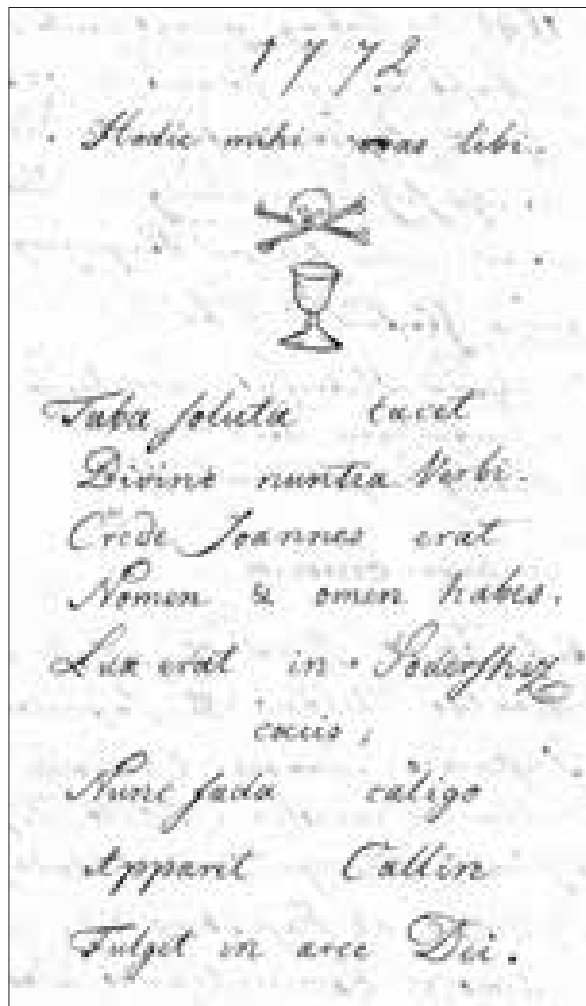 1772
Hodie mihi cras tibi.
Tuba soluta tacet
Divino nuntia Verbi.
Crede Joannes erat
Nomen & omen habes.
Lux erat in
Nunc fada caligo
Apparet Callin
Fulget in arce Dei.